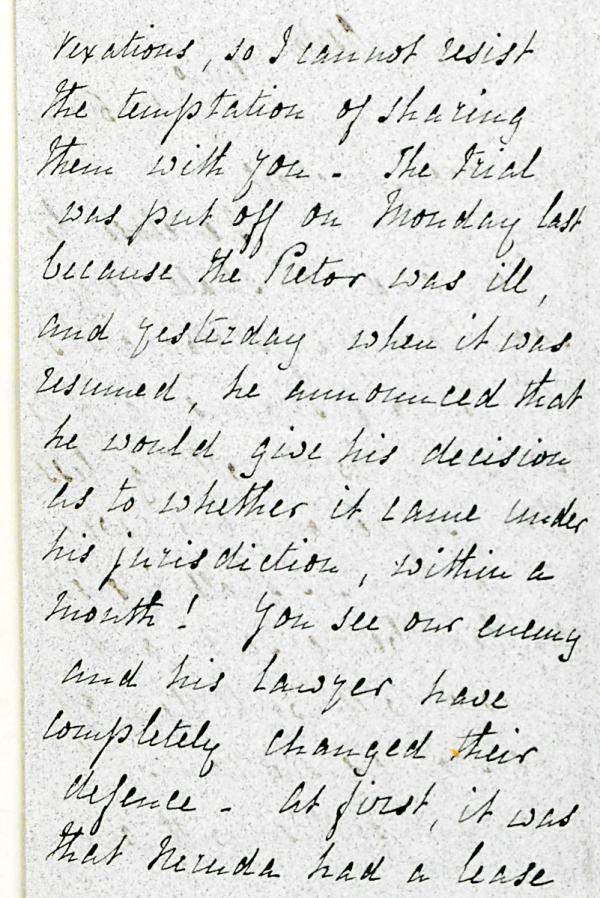 vexations, so I cannot resist
the temptation of sharing
them with you - The trial
was put off on Monday last
because the Pretor was ill,
and yesterday when it was
resumed, he announced that
he would give his decision
as to whether it came under
his jurisdiction, within a
month! You see our enemy
and his lawyer have
completely changed their
defence - At first, it was
that Neruda had a lease